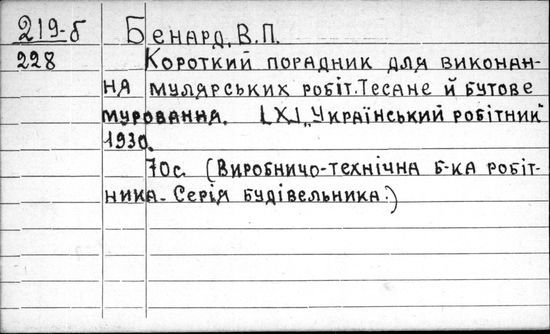 219-б Бенард, В.П.
228 Короткий порадник для виконан-
ня мулярських робіт. Тесане й бутове
мурования. [Х.] „Український робітник"
1930.
70с. (Виробничо-технічна б-ка робіт-
ника. Серія будівельника.)